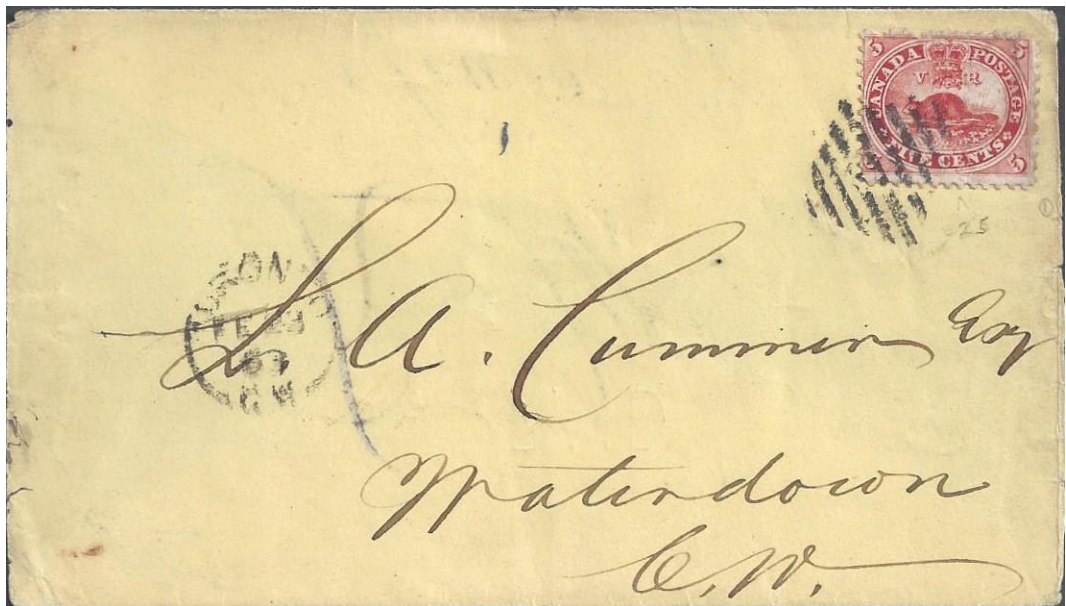 5 CANADA POSTAGE 5
V R
5 FIVE CENTS 5
25
TORONTO
FE 23
63
C.W
L. A. Cummer Esq
Waterdown
C.W.